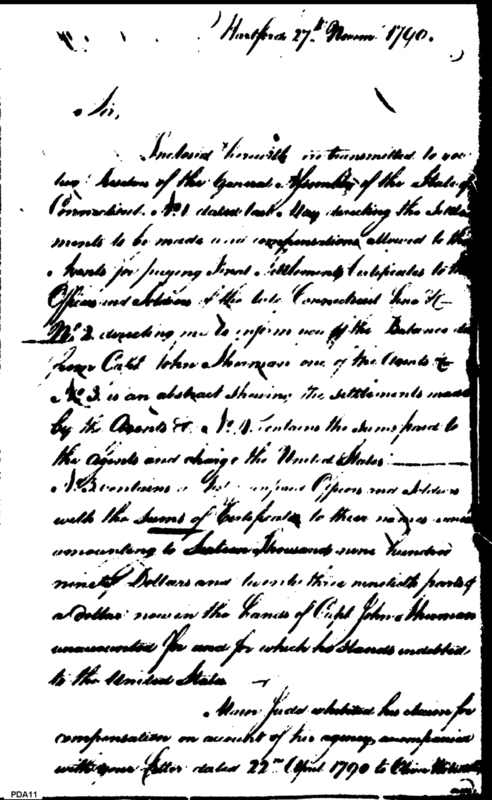 Hartford 27th Novem. 1790.
Sir,
Inclosed herewith is transmitted to you
two Resolves of the General Assembly of the State of
Connecticut. No. 1 dated last May directing the Settle
ments to be made and compensations allowed to the
Agents for paying Final Settlement Certificates to the
Officers and Soldiers of the late Connecticut Line &
No. 2 directing me to inform you of the Balance due
from Capt. John Sherman one of the Agents &
No. 3. is an abstract shewing the settlements made
by the Agents & No. 4. contains the sums paid to
the Agents and charge the United States.
No. 5 contains a Officers and Soldiers
with the sums of Certificates to their names
amounting to Sixteen Thousand nine hundred
ninety Dollars and twenty three ninetieth parts of
a dollar now in the hands of Capt. John Sherman
unaccounted for and for which he stands indebted
to the United States
Major Judd exhibited his claim for
compensation on account of his agency accompanied
with your Letter dated 22nd April 1790 to Oliver
PDA11